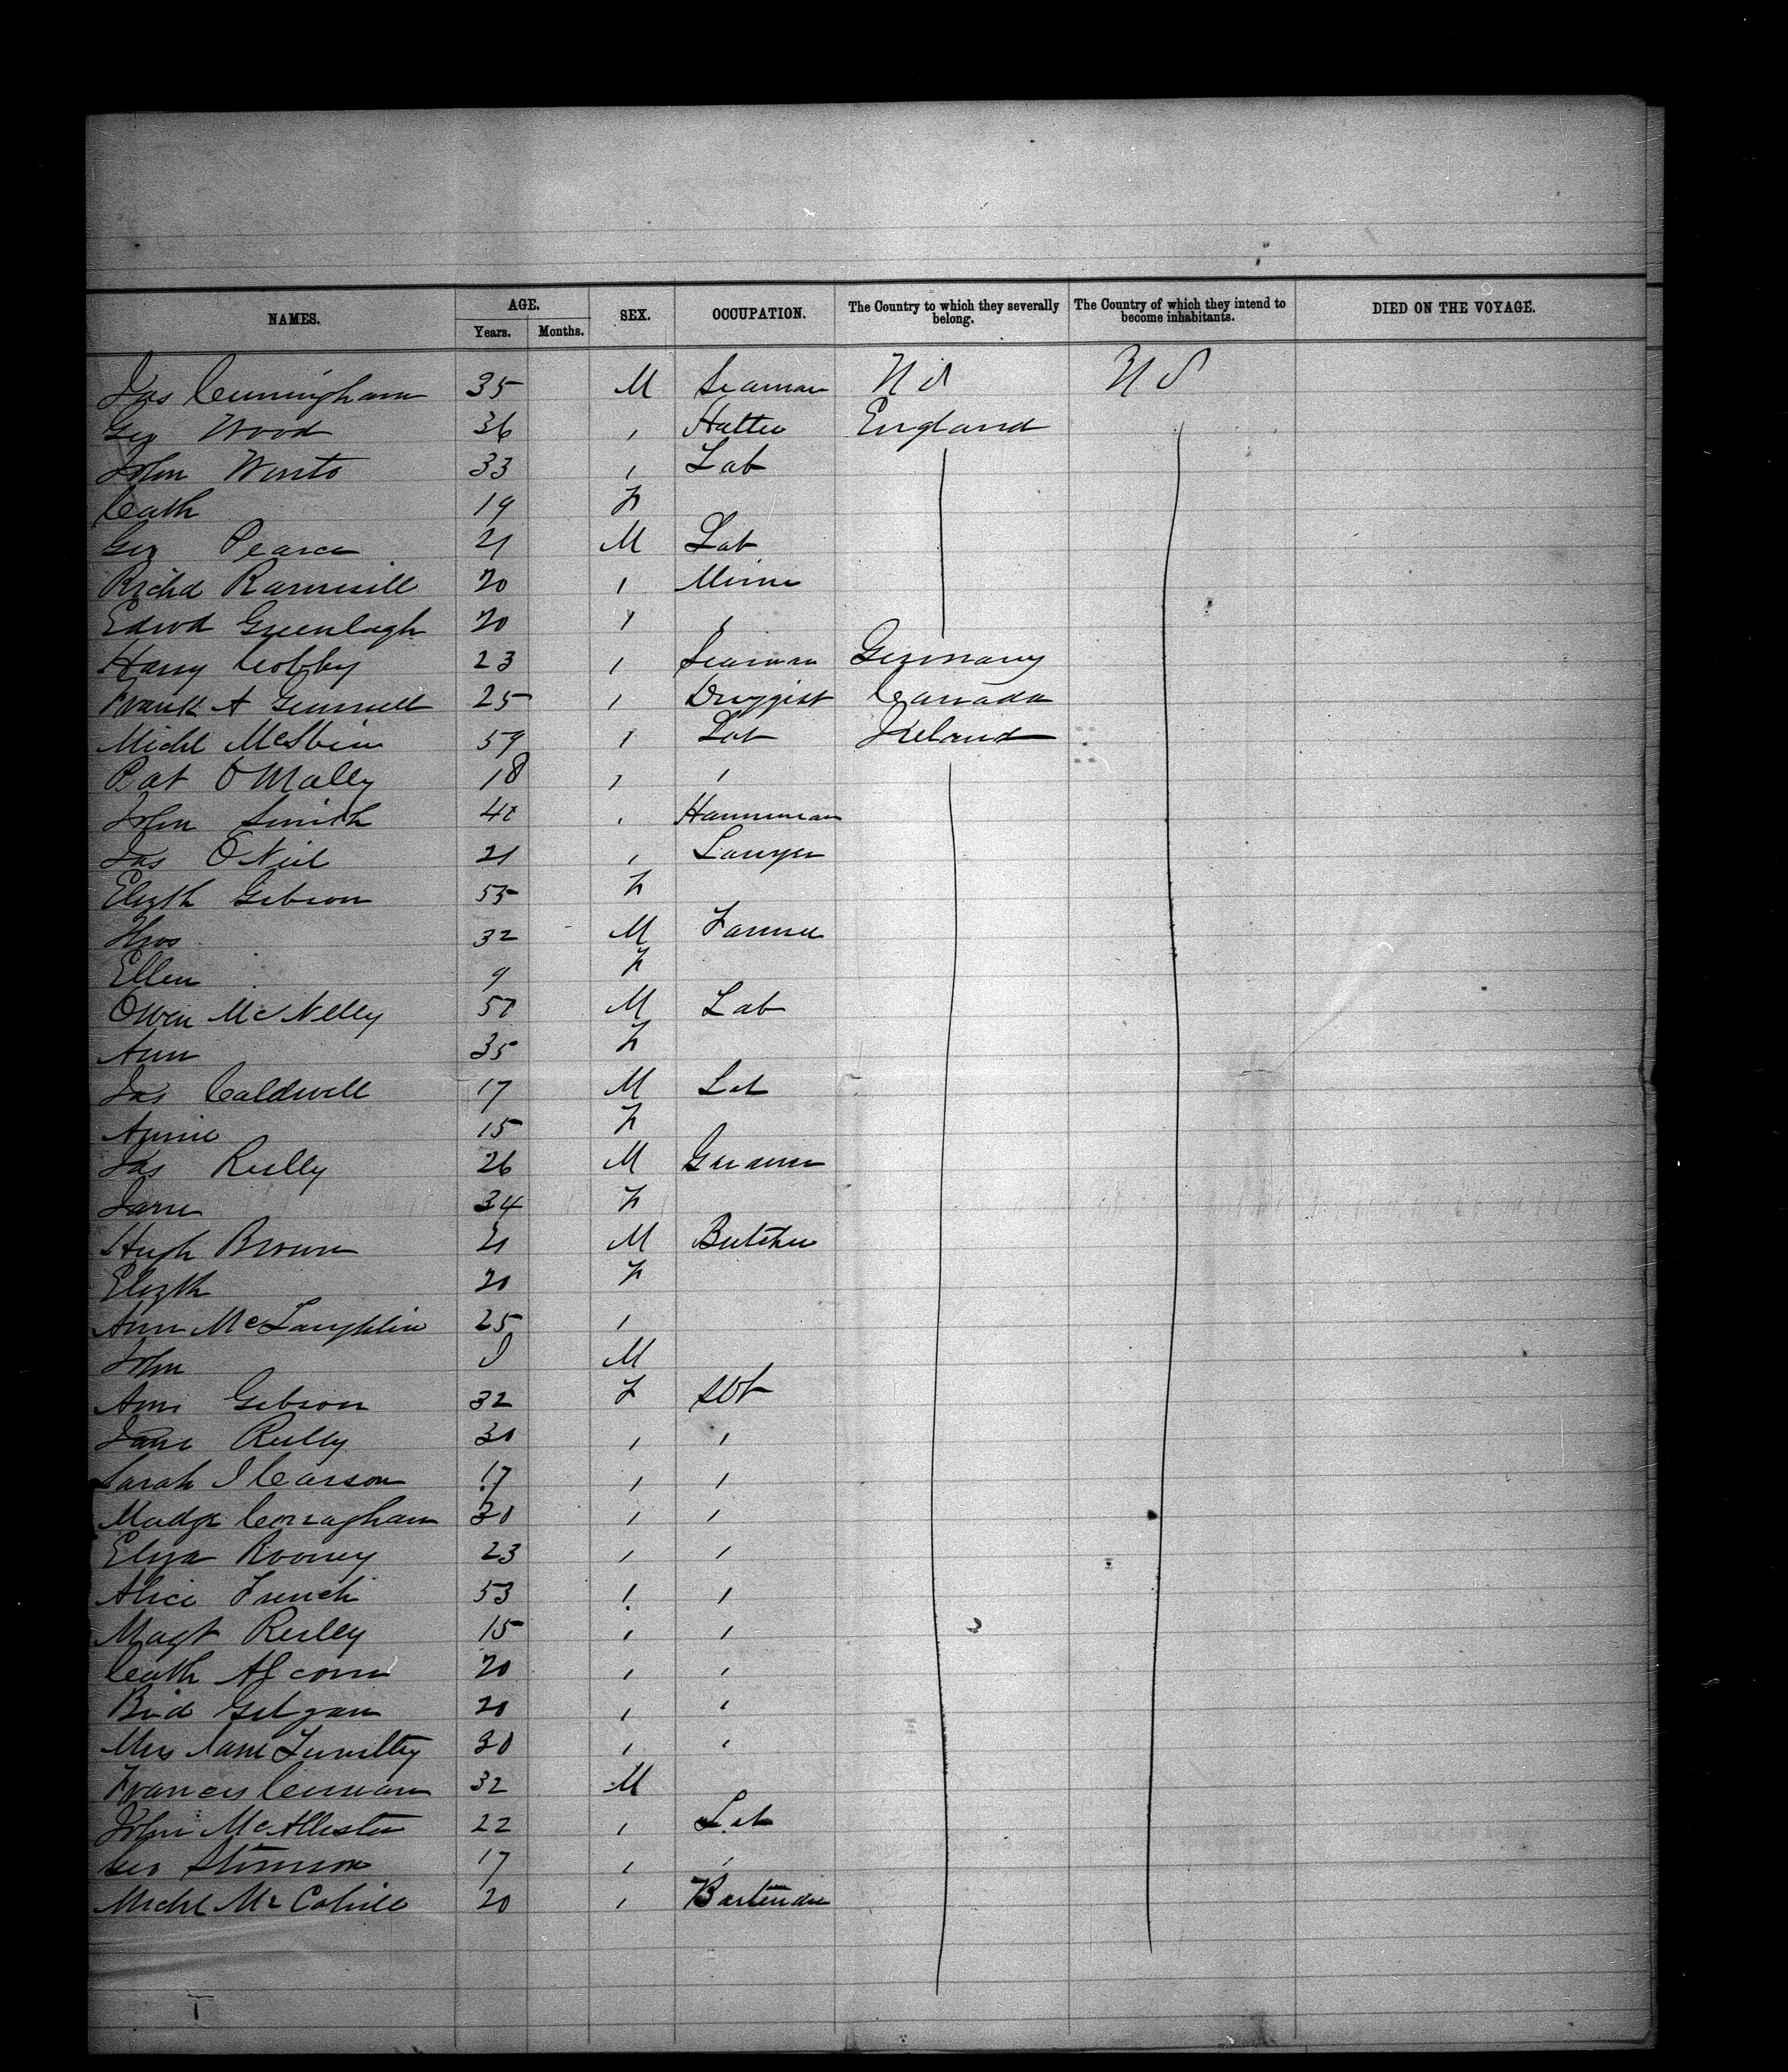 NAMES. AGE. SEX. OCCUPATION. The Country to which they severally belong. The Country of which they intend to become inhabitants. DIED ON THE VOYAGE.
Years. Months.
Jas Cunningham 35 M Seaman U S U S
Geo Wood 36 , Hatter England
John 33 , Lab
Cath 19 F
Geo Pearce 21 M Lab
Richd 20 , Miner
Edwd Greenlagh 20 , ,
Harry Cobby 23 , Seaman Germany
Frank A Gemmell 25 , Druggist Canada
Michl 59 , Lab Ireland
Pat O Mally 18 , ,
John Smith 40 ,
Jas O Neil 21 , Lawyer
Elizth Gibson 55 F
Thos 32 M Farmer
Ellen 9 F
Owen McNelly 50 M Lab
Ann 35 F
Jas Caldwell 17 M Lab
Annie 15 F
Jas Reilly 26 M
Jane 34 F
Hugh Brown 21 M Butcher
Elizth 20 F
Ann McLaughlin 25 ,
John M
Ann Gibson 32 F
Jane Reilly 30 , ,
Sarah J Carson 17 , ,
Madge Conaghan 30 , ,
Eliza Rooney 23 , ,
Alice French 53 , ,
Magt Reiley 15 , ,
Cath Alcorn 20 , ,
Brid Gilgan 20 , ,
Mrs Jane 30 , ,
Francis 32 M
John McAllister 22 , Lab
Geo Stinson 17 , ,
Michl McCahill 20 , Bartender